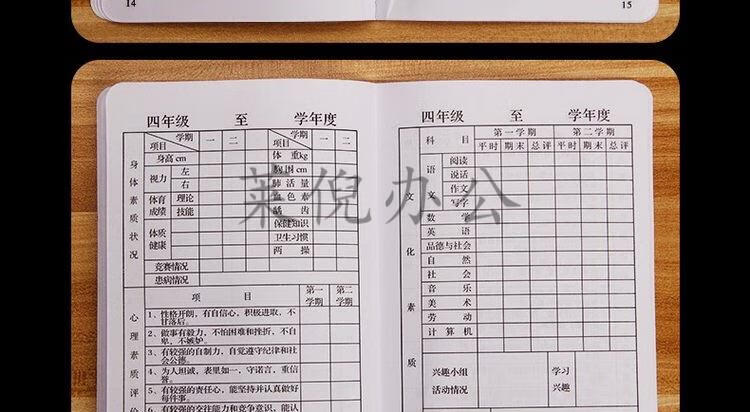 14
15
四年级 至 学年度
学期 一 二 学期 一 二
项目 项目
身高 cm 体重kg
视力 左 胸围cm
右 肺活量
体育成绩 理论 血色素
技能 龋齿
体质健康 保健知识
卫生习惯
两操
竞赛情况
患病情况
身体素质状况
项目 第一学期 第二学期
1、性格开朗，有自信心，积极进取，不
甘落后。
2、做事有毅力，不怕困难和挫折，不自
卑，不嫉妒。
3、有较强的自制力，自觉遵守纪律和社
会公德。
4、为人坦诚，表里如一，守诺言，重信
誉。
5、有较强的责任心，能坚持并认真做好
每件事。
6、有较强的交往能力和竞争意识，能认
心理素质评价
四年级 至 学年度
科目 第一学期 第二学期
平时 期末 总评 平时 期末 总评
语文 阅读
说话
作文
写字
数学
英语
品德与社会
自然
社会
音乐
美术
劳动
计算机
兴趣小组 学习
活动情况 兴趣
文化素质
莱倪办公